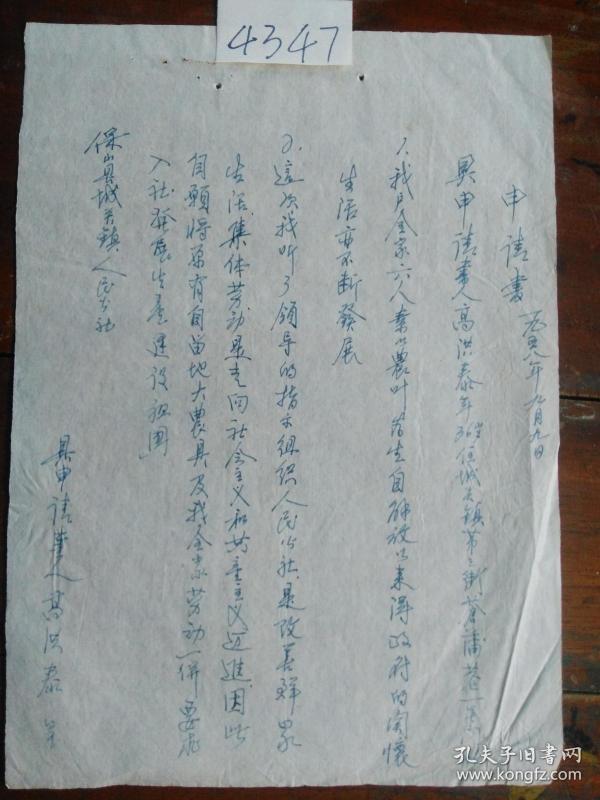 4347
申请书 一九五八年九月九日
具申请书人高洪泰年36岁住城关镇第三街菖蒲巷一号
1.我户全家六人素以農叶为生自解放以来得政府的関懷
生活亦不断發展
2.這次我听了領导的指示組织人民公社是改善群众
生活集体劳动是走向社会主义和共產主义迈進因此
自願将原有自留地大農具及我全家劳动一併要求
入社發展生産建设祖国
保山县城关鎮人民公社
具申请書人高洪泰呈
孔夫子旧书网
www.kongfz.com